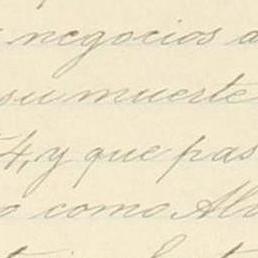 negocios
su muerte
4, y que pas
o como Alv